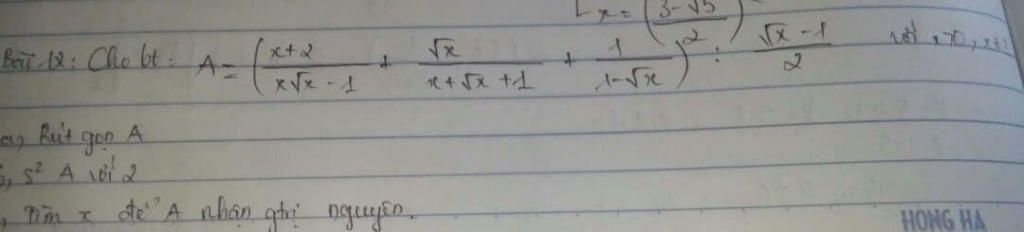 x = (3-√5 / )²
Bài 12: Cho bt: A = (x+2 / x√x - 1 + √x / x+√x+1 + 1 / 1-√x) : √x - 1 / 2 với x>0, x≠1
a, Rút gọn A
, s² A với 2
, Tìm x để A nhận gtrị nguyên.
HONG HA